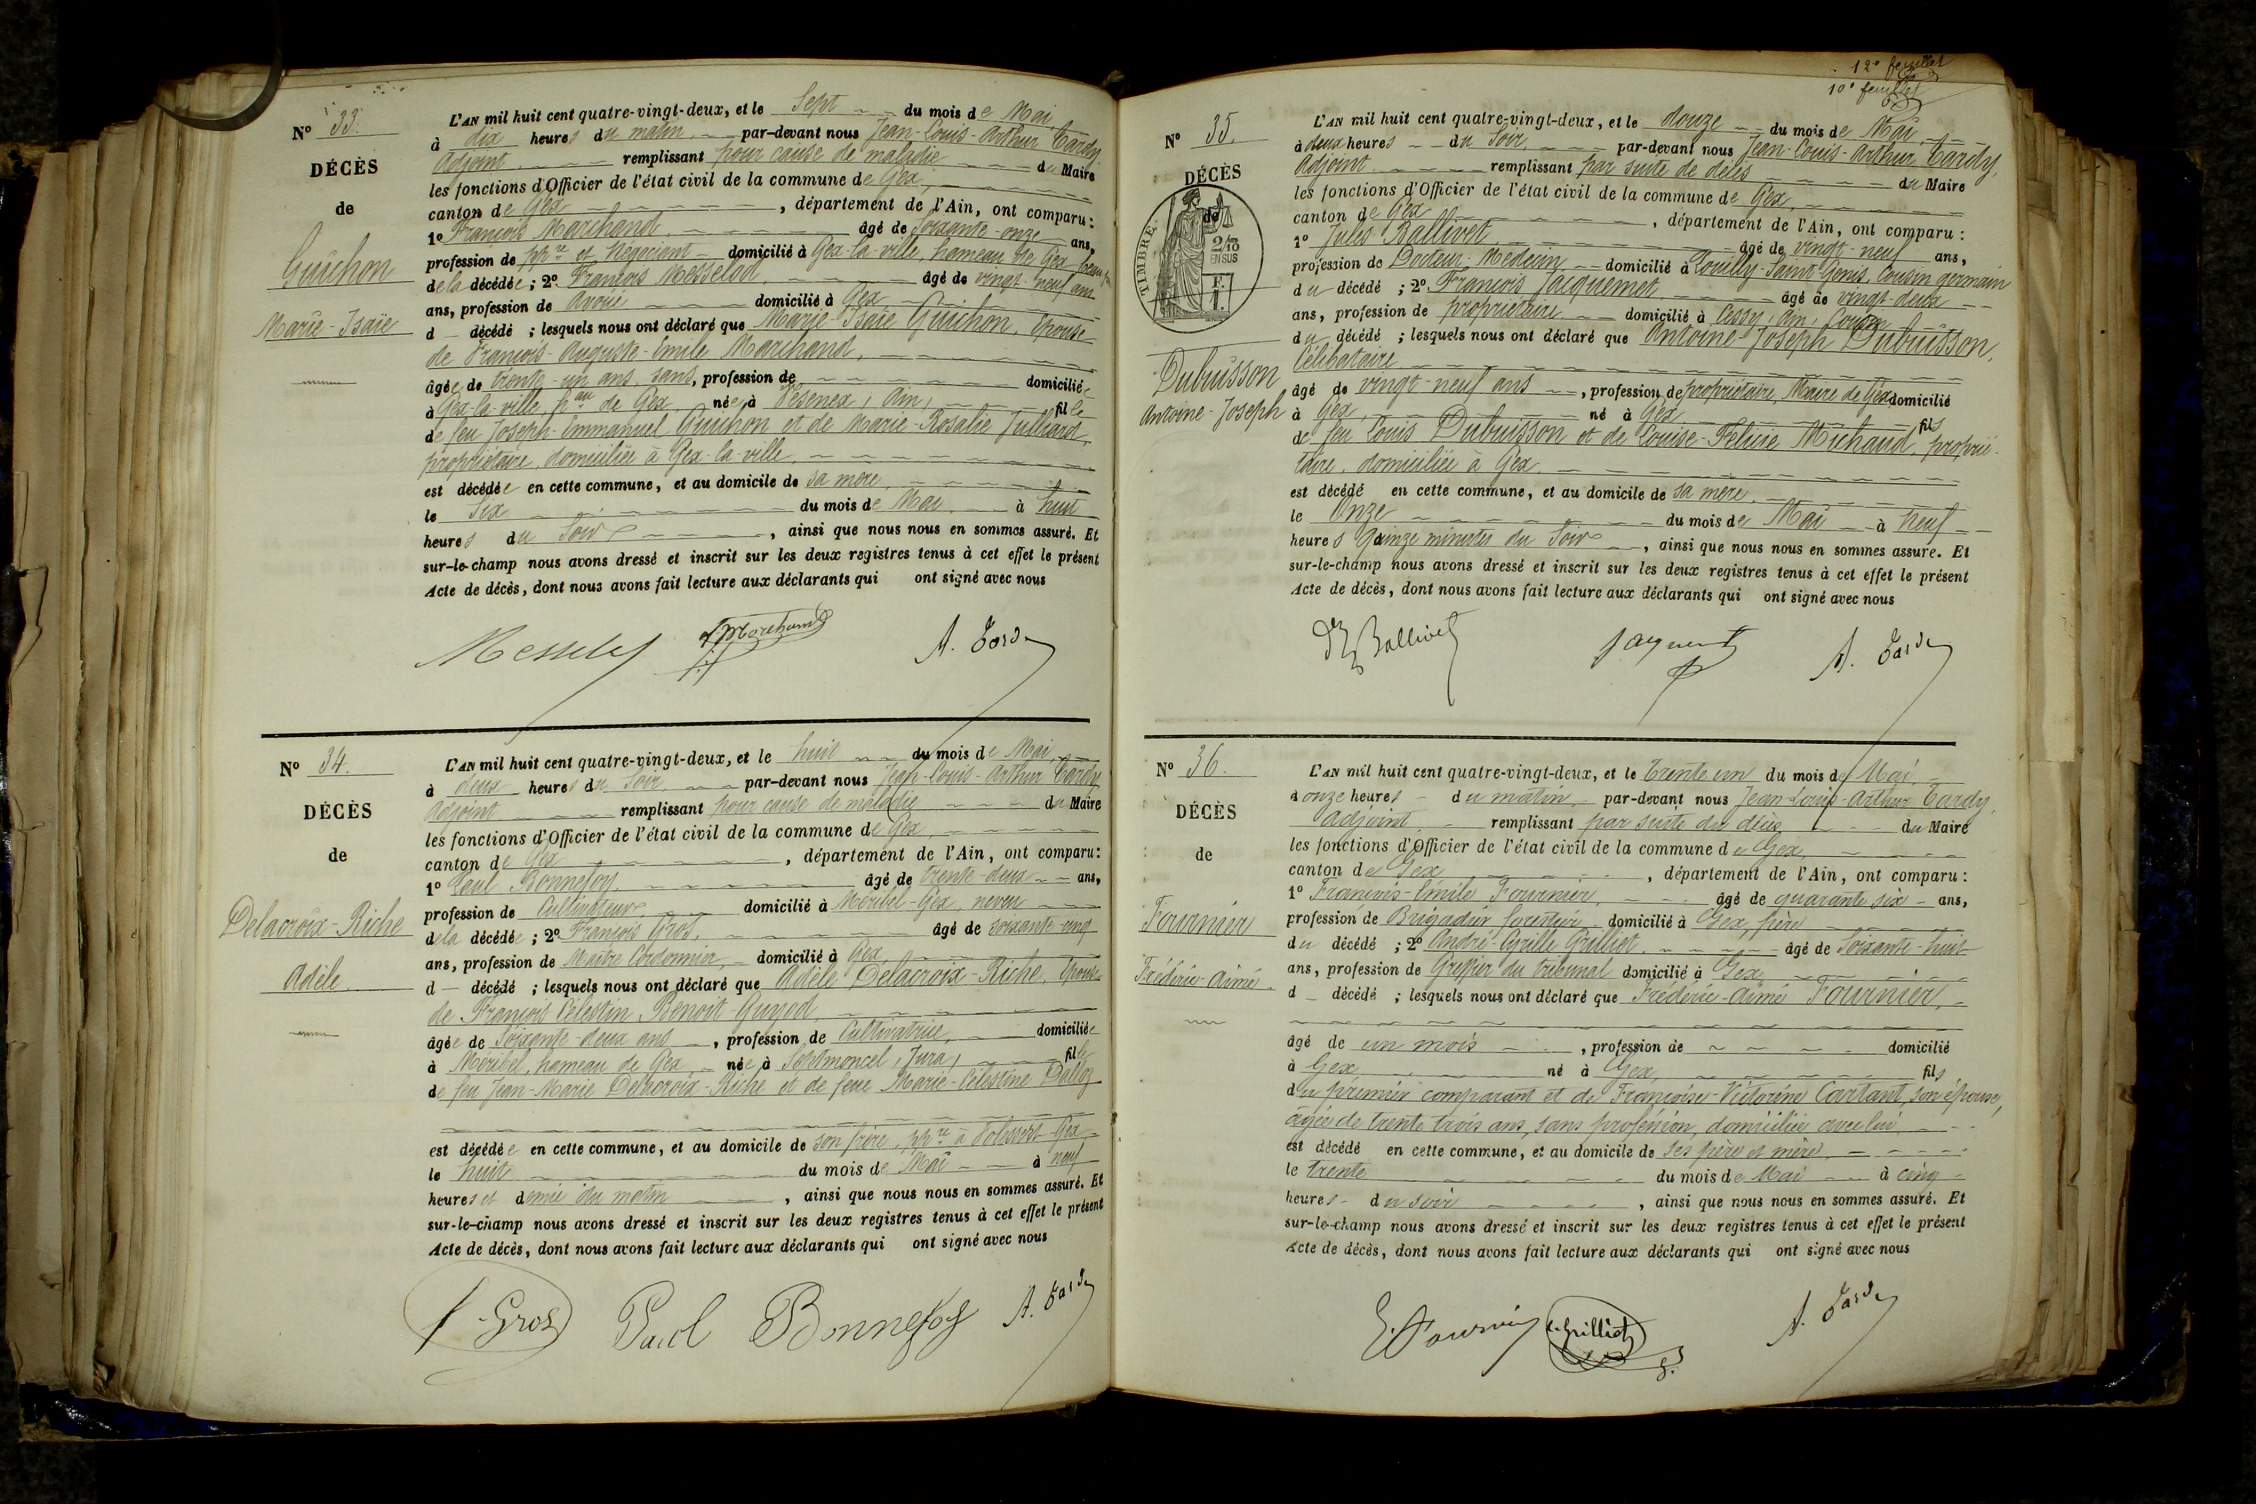 N° 33.
DÉCÈS
de
Guichon
Marie-Isaïe
L'AN mil huit cent quatre-vingt-deux, et le Sept du mois de Mai
à dix heures du matin par-devant nous Jean-Louis-Arthur Tardy,
Adjoint remplissant pour cause de maladie du Maire
les fonctions d'Officier de l'état civil de la commune de Gex,
canton de Gex, département de l'Ain, ont comparu :
1° François Marchand, âgé de Soixante-onze ans,
profession de pp.re et Négociant domicilié à Gex-la-ville, hameau de Gex,
de la décédée ; 2° François Messelod âgé de vingt-neuf ans
ans, profession de Avoué domicilié à Gex
d décédé ; lesquels nous ont déclaré que Marie-Isaïe Guichon, épouse
de François-Auguste-Emile Marchand,
âgée de trente-un ans, sans, profession de domiciliée
à Gex-la-ville, h.au de Gex, née à Vésenex, Ain, fille
de feu Joseph-Emmanuel Guichon et de Marie-Rosalie Julliard,
propriétaire, domiciliée à Gex-la-ville,
est décédée en cette commune, et au domicile de sa mère,
le Six du mois de Mai à huit
heures du Soir, ainsi que nous nous en sommes assuré. Et
sur-le-champ nous avons dressé et inscrit sur les deux registres tenus à cet effet le présent
Acte de décès, dont nous avons fait lecture aux déclarants qui ont signé avec nous
Messelod f Marchand A. Tardy
N° 34.
DÉCÈS
de
Delacroix-Riche
Adèle
L'AN mil huit cent quatre-vingt-deux, et le huit du mois de Mai,
à deux heures du Soir, par-devant nous Jean-Louis-Arthur Tardy
Adjoint remplissant pour cause de maladie du Maire
les fonctions d'Officier de l'état civil de la commune de Gex,
canton de Gex, département de l'Ain, ont comparu :
1° Paul Bonnefoy, âgé de trente-deux ans,
profession de Cultivateur, domicilié à Moribel-Gex, neveu
de la décédée ; 2° François Gros, âgé de soixante-cinq
ans, profession de Maître Cordonnier, domicilié à Gex,
d décédé ; lesquels nous ont déclaré que Adèle Delacroix-Riche, épouse
de François Célestin Benoit-Guyod
âgée de Soixante-deux ans, profession de Cultivatrice, domiciliée
à Moribel, hameau de Gex née à Septmoncel, Jura, fille
de feu Jean-Marie Delacroix-Riche et de feue Marie-Célestine Dalloz
est décédée en cette commune, et au domicile de son frère, pp.re à Gex
le huit du mois de Mai à neuf
heures et demie du matin, ainsi que nous nous en sommes assuré. Et
sur-le-champ nous avons dressé et inscrit sur les deux registres tenus à cet effet le présent
Acte de décès, dont nous avons fait lecture aux déclarants qui ont signé avec nous
f Gros Paul Bonnefoy A. Tardy
12e feuillet
10e feuillet
N° 35.
DÉCÈS
de
TIMBRE.
2/10
EN SUS
F.
1
Dubuisson
Antoine-Joseph
L'AN mil huit cent quatre-vingt-deux, et le douze du mois de Mai,
à deux heures du Soir, par-devant nous Jean-Louis-Arthur Tardy,
Adjoint remplissant par suite de décès du Maire
les fonctions d'Officier de l'état civil de la commune de Gex,
canton de Gex, département de l'Ain, ont comparu :
1° Jules Ballivet âgé de vingt-neuf ans,
profession de Docteur-Médecin domicilié à Pouilly-Saint-Genis, Cousin germain
du décédé ; 2° François Jacquemet, âgé de vingt-deux
ans, profession de propriétaire domicilié à Cessy, Ain, Cousin
du décédé ; lesquels nous ont déclaré que Antoine-Joseph Dubuisson,
Célibataire
âgé de vingt-neuf ans, profession de propriétaire, Maire de Gex domicilié
à Gex, né à Gex fils
de feu Louis Dubuisson et de Louise-Félicie Michaud, proprié-
taire, domiciliée à Gex,
est décédé en cette commune, et au domicile de sa mère,
le Onze du mois de Mai à neuf
heures quinze minutes du Soir, ainsi que nous nous en sommes assuré. Et
sur-le-champ nous avons dressé et inscrit sur les deux registres tenus à cet effet le présent
Acte de décès, dont nous avons fait lecture aux déclarants qui ont signé avec nous
Dr Ballivet Jacquemet A. Tardy
N° 36.
DÉCÈS
de
Fournier
Frédéric-Aimé
L'AN mil huit cent quatre-vingt-deux, et le Trente un du mois de Mai
à onze heures du matin, par-devant nous Jean-Louis-Arthur Tardy,
Adjoint, remplissant par suite du décès du Maire
les fonctions d'Officier de l'état civil de la commune de Gex,
canton de Gex, département de l'Ain, ont comparu :
1° François-Emile Fournier, âgé de quarante six ans,
profession de Brigadier forestier domicilié à Gex, père
du décédé ; 2° André-Cyrille Grilliet âgé de Soixante-huit
ans, profession de Greffier du tribunal domicilié à Gex
d décédé ; lesquels nous ont déclaré que Frédéric-Aimé Fournier,
âgé de un mois, profession de domicilié
à Gex, né à Gex, fils
du premier comparant et de Françoise-Victorine Cartant, son épouse,
âgée de trente trois ans, sans profession, domiciliée avec lui,
est décédé en cette commune, et au domicile de ses père et mère,
le trente du mois de Mai à cinq
heures du soir, ainsi que nous nous en sommes assuré. Et
sur-le-champ nous avons dressé et inscrit sur les deux registres tenus à cet effet le présent
Acte de décès, dont nous avons fait lecture aux déclarants qui ont signé avec nous
E. Fournier C. Grilliet A. Tardy